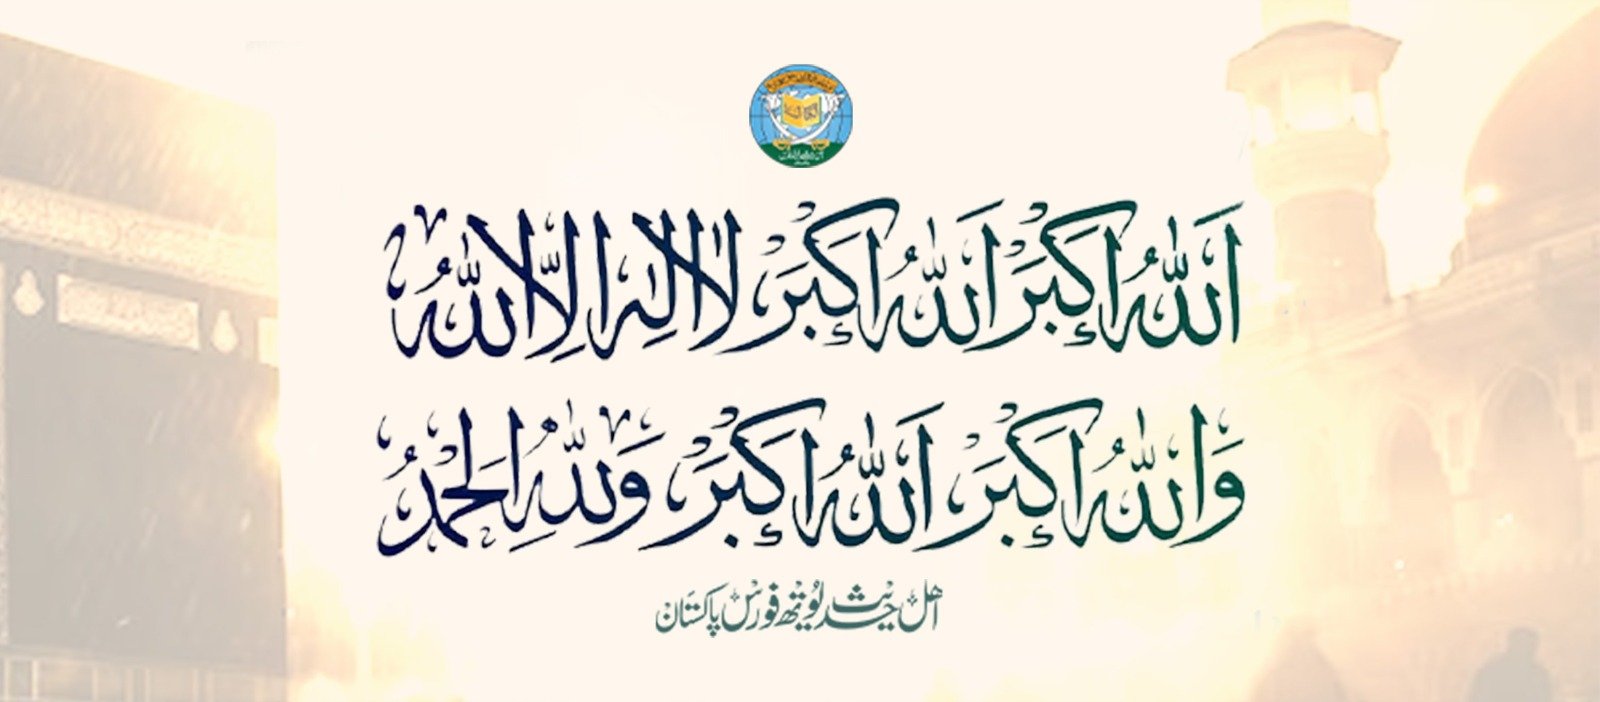 اَللّٰهُ اَكْبَرُ اَللّٰهُ اَكْبَرُ لَا اِلٰهَ اِلَّا اللّٰهُ
وَاللّٰهُ اَكْبَرُ اَللّٰهُ اَكْبَرُ وَلِلّٰهِ الْحَمْدُ
اھل حدیث یوتھ فورس پاکستان